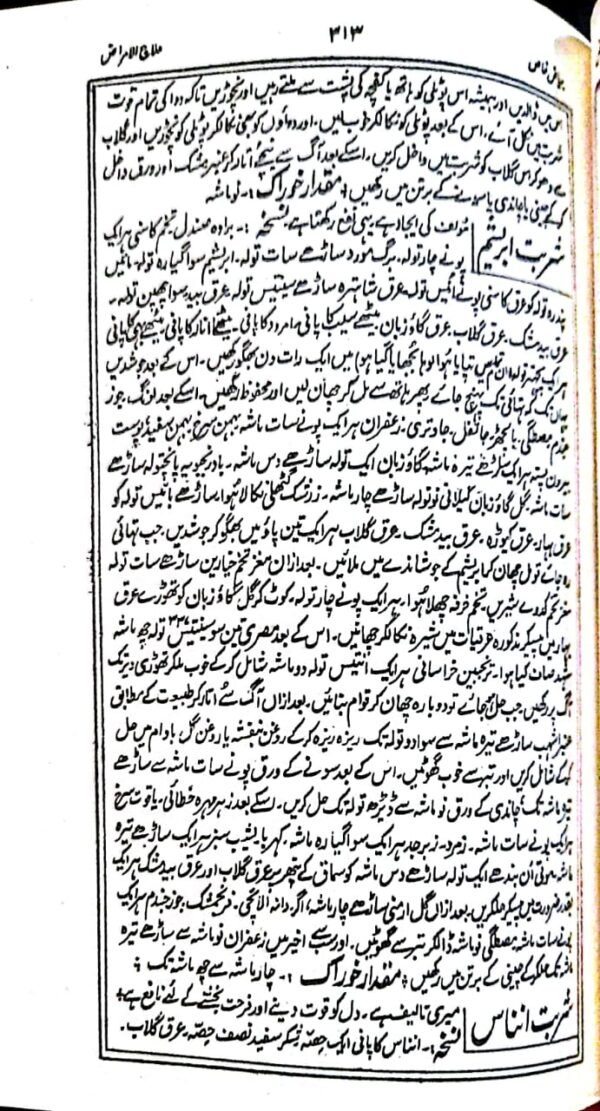 علاج الامراض
۳۱۳
بیاض خاص
اس میں ڈالدیں اور ہمیشہ اس پوٹلی کو ہاتھ یا کفچہ کی پشت سے ملتے رہیں اور نچوڑیں تاکہ دوا کی تمام قوت
شربت میں نکل آئے۔ اس کے بعد پوٹلی کو نکالکر خوب لیں۔ اور دواؤں کو بھی نکالکر پوٹلی کو نچوڑیں اور گلاب
سے دھو کر اس گلاب کو شربت میں داخل کریں۔ اسکے بعد آگ سے نیچے اُتار کر عنبر مشک اور ورق داخل
کر کے چینی یا چاندی یا سونے کے برتن میں رکھیں ٭ مقدار خوراک :۔ نو ماشہ
شربت ابریشم
مؤلف کی ایجاد ہے یہی نفع رکھتا ہے نسخہ :۔ برادہ صندل۔ تخم کاسنی ہر ایک
پونے چار تولہ۔ برگ مورد ساڑھے سات تولہ۔ ابریشم سوا گیارہ تولہ۔ پائیں
پندرہ تولہ کو عرق کاسنی پونے اُنیس تولہ عرق شاہترہ ساڑھے سینتیس تولہ عرق بید سوا چھپن تولہ۔
عرق بیدمشک۔ عرق گلاب عرق گاؤزبان میٹھے سیب کا پانی۔ امرود کا پانی۔ میٹھے انار کا پانی میٹھے بہی کا پانی
ہر ایک تولہ ان میں تپایا ہوا لوہا بجھایا گیا ہو) میں ایک رات دن بھگو رکھیں۔ اس کے بعد جوشدیں
یہاں تک کہ تہائی تک پہنچ جائے پھر ہاتھ سے مل کر چھان لیں اور محفوظ رکھیں۔ اسکے بعد لونگ۔ جوز
جندم مصطگی۔ بالچھڑ جائفل۔ جاوتری۔ زعفران ہر ایک پونے سات ماشہ بہمن سرخ بہمن سفید پوست
بیرون پستہ ہر ایک ساڑھے تیرہ ماشہ گاؤزبان ایک تولہ ساڑھے دس ماشہ۔ بادرنجبویہ پانچتولہ ساڑھے
سات ماشہ۔ گل گاؤزبان گیلانی نو تولہ ساڑھے چار ماشہ۔ زرشک گٹھلی نکالا ہوا۔ ساڑھے بائیس تولہ کو
عرق بہار۔ عرق کیوڑہ۔ عرق بیدمشک۔ عرق گلاب ہر ایک تین پاؤ میں بھگو کر جوشدیں جب تہائی
رہ جائے تو مل چھان کر ابریشم کے جوشاندے میں ملائیں۔ بعد ازاں مغز تخم خیارین ساڑھے سات تولہ
مغز تخم کدوئے شیریں۔ تخم خرفہ چھلا ہوا۔ ہر ایک پونے چار تولہ۔ کوٹ کر گل گاؤ زبان کو تھوڑے عرق
بہار میں پیسکر مذکورہ عرقیات میں شیرہ نکالکر چھانیں۔ اس کے بعد مصری تین سو سینتیس ۳۳۷ تولہ چھ ماشہ
سفید صاف کیا ہوا۔ ترنجبین خراسانی ہر ایک انتیس تولہ دو ماشہ شامل کر کے خوب ملکر تھوڑی دیر تک
آگ پر رکھیں جب حل ہو جائے تو دوبارہ چھان کر قوام بنائیں۔ بعد ازاں آگ سے اُتار کر طبیعت کے مطابق
عنبر اشہب ساڑھے تیرہ ماشہ سے سوا دو تولہ تک ریزہ ریزہ کر کے روغن بنفشہ یا روغن گل بادام میں حل
کر کے شامل کریں اور تبر سے خوب گھوٹیں۔ اس کے بعد سونے کے ورق پونے سات ماشہ سے ساڑھے
تیرہ ماشہ تک چاندی کے ورق نو ماشہ سے ڈیڑھ تولہ تک حل کریں۔ اسکے بعد زہر مہرہ خطائی۔ یاقوت سرخ
ہر ایک پونے سات ماشہ۔ زمرد۔ زبرجد ہر ایک سوا گیارہ ماشہ۔ کہربا۔ یشب سبز ہر ایک ساڑھے تیرہ
ماشہ۔ موتی اَن بندھے ایک تولہ ساڑھے دس ماشہ کو سماق کے پتھر پر عرق گلاب اور عرق بیدمشک ہر ایک
بقدر ضرورت میں پیسکر ملکریں۔ بعد ازاں گل ارمنی ساڑھے چار ماشہ۔ اگر۔ دانہ الائچی۔ فرنجمشک۔ جوز جندم ہر ایک
پونے سات ماشہ مصطگی نو ماشہ ڈالکر تبر سے گھوٹیں۔ اور سب سے اخیر میں زعفران نو ماشہ سے ساڑھے تیرہ
ماشہ تک ملکر کے چینی کے برتن میں رکھیں ٭ مقدار خوراک :۔ چار ماشہ سے چھ ماشہ تک ٭
شربت انناس
میری تالیف ہے۔ دل کو قوت دینے اور فرحت بخشنے کے لئے نافع ہے ٭
نسخہ :۔ انناس کا پانی ایک حصّہ شکر سفید نصف حصّہ۔ عرق گلاب۔